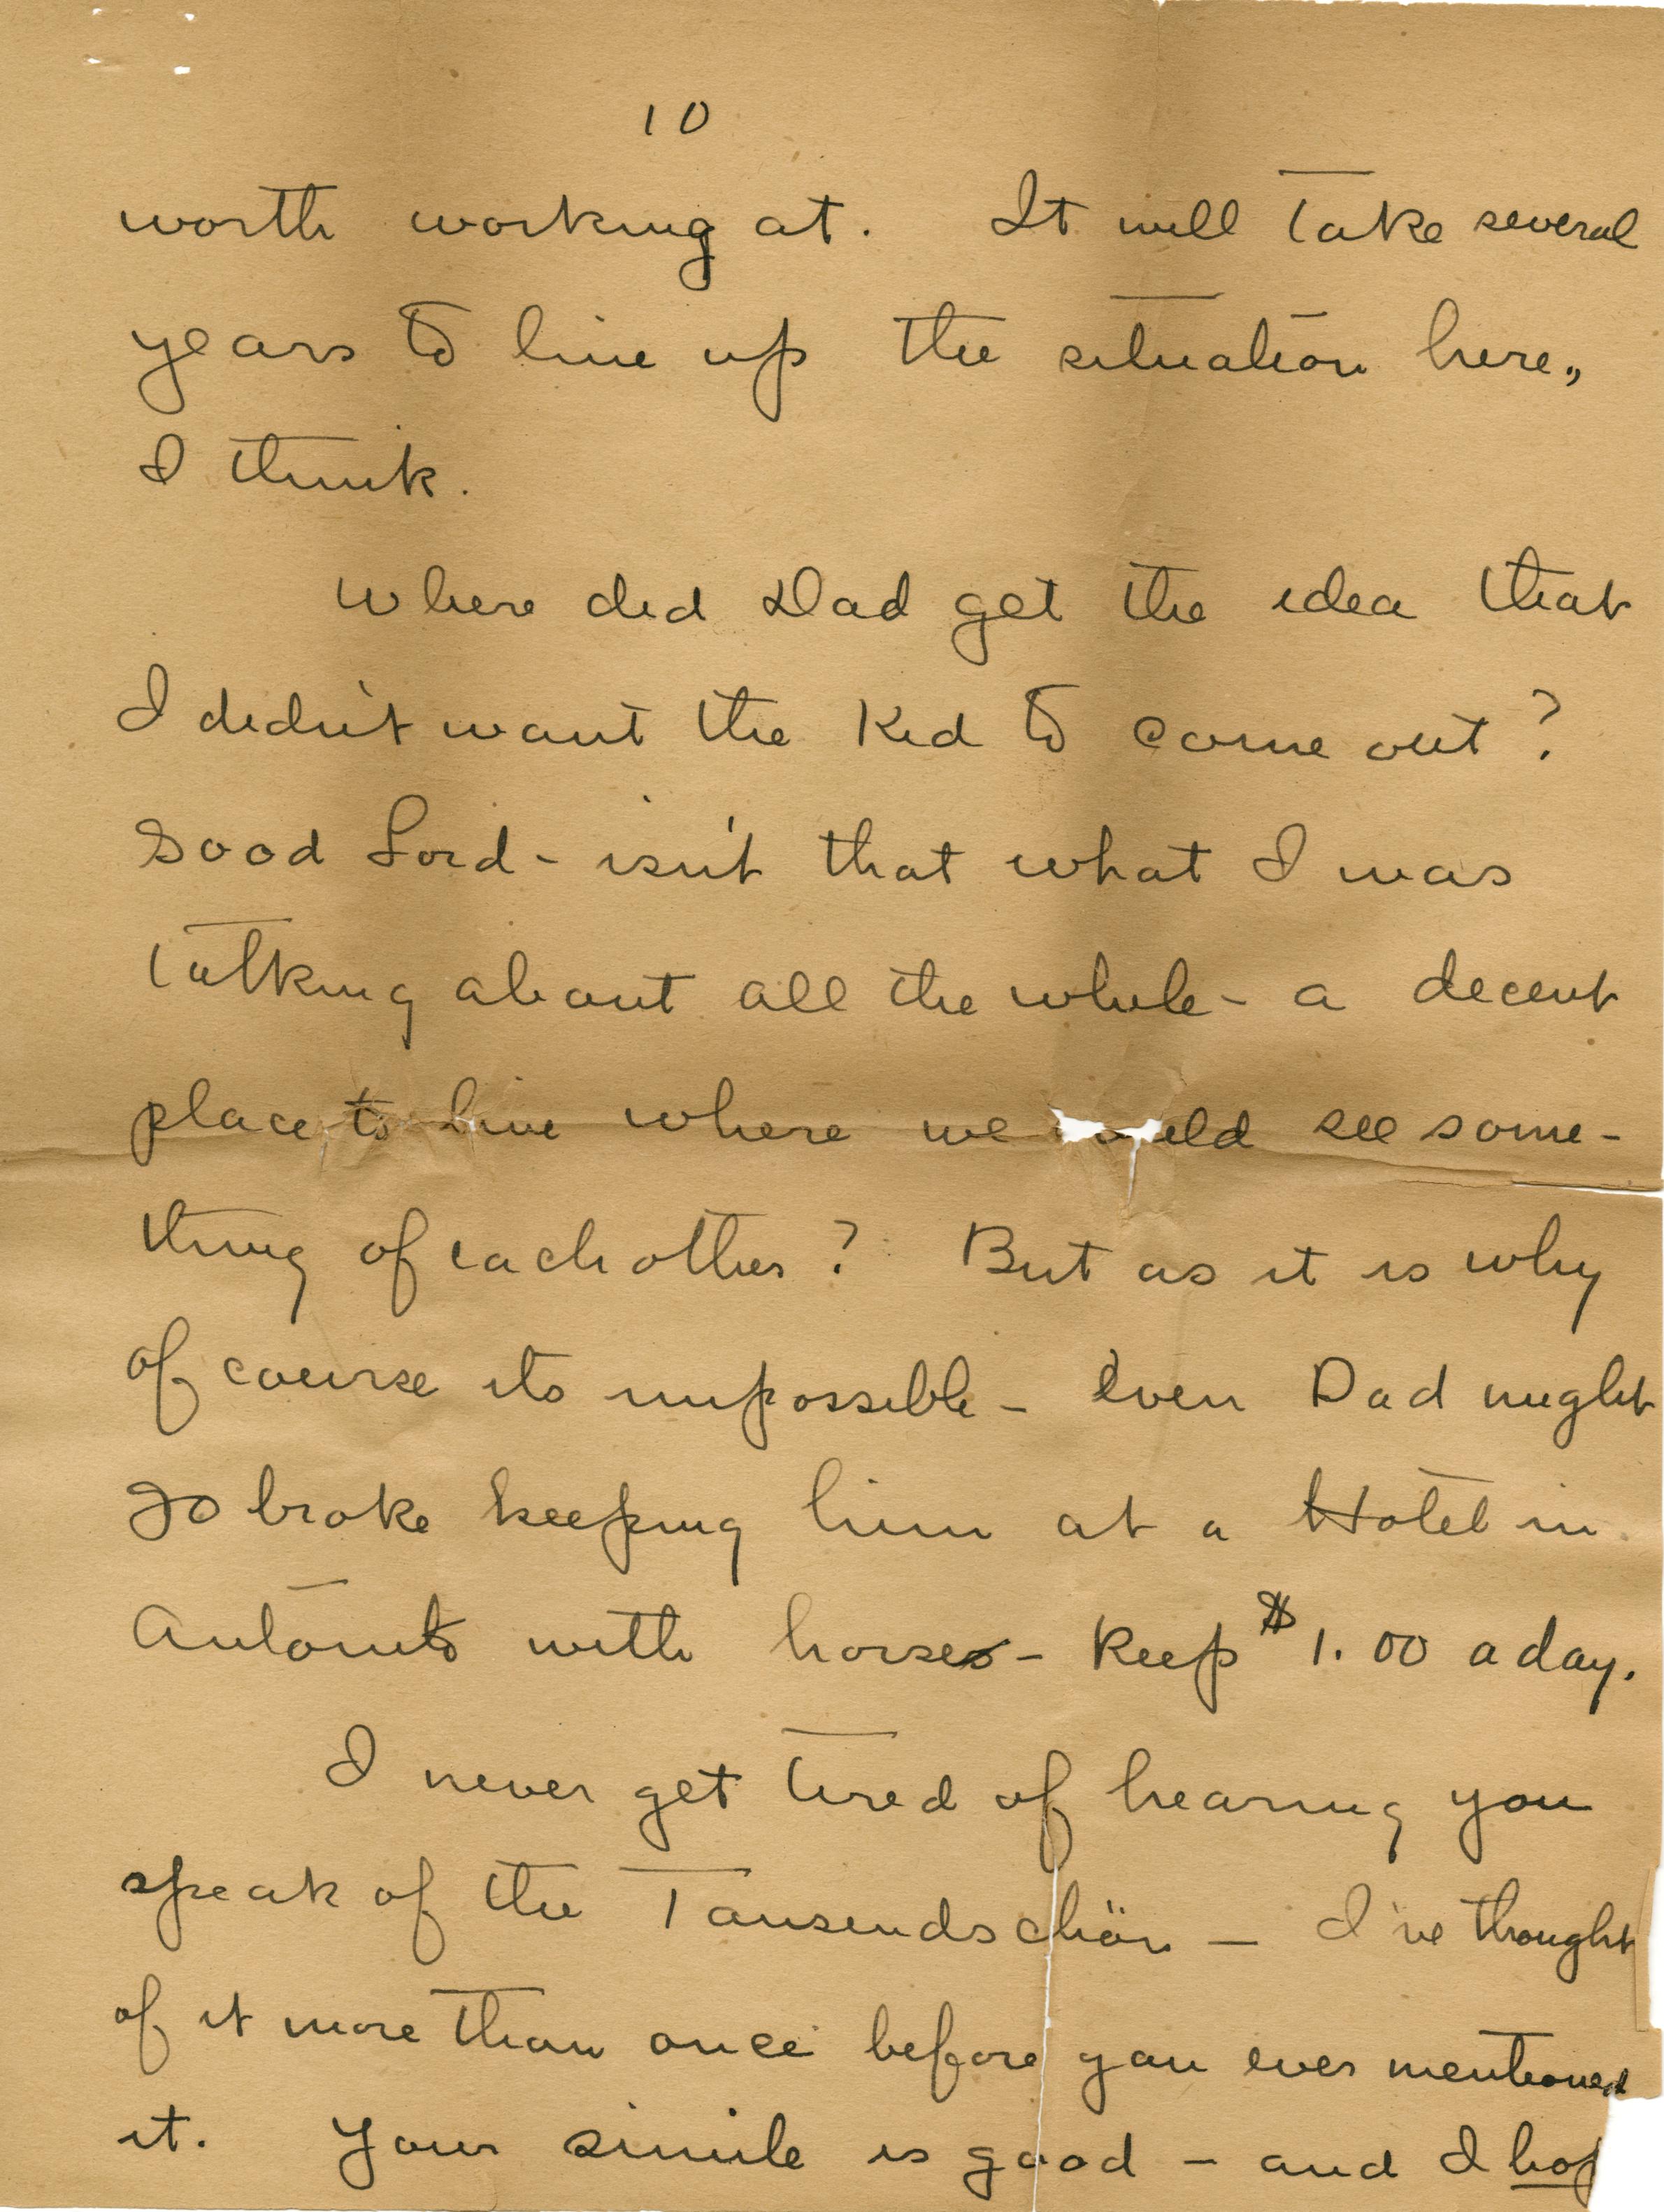 10
worth working at. It will take several
years to line up the situation here,
I think.
Where did Dad get the idea that
I didn't want the Kid to come out?
Good Lord - isn't that what I was
talking about all the while - a decent
place to live where we could see some-
thing of each other? But as it is why
of course its impossible - Even Dad might
go broke keeping him at a Hotel in
Antonito with horses - keep $1.00 a day.
I never get tired of hearing you
speak of the Tausendschön - I've thought
of it more than once before you ever mentioned
it. Your simile is good - and I hop